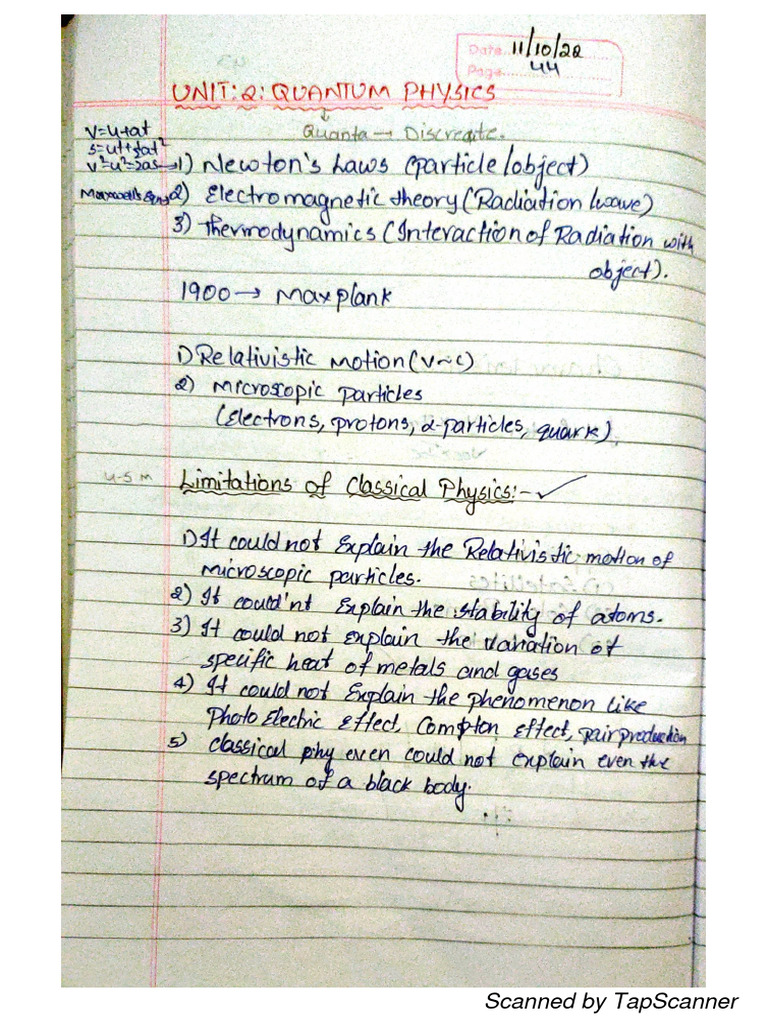 Date 11/10/22
Page 44
UNIT: 2: QUANTUM PHYSICS
Quanta → Discreate.
v=u+at
s=ut+½at²
v²-u²=2as → 1) Newton's Laws (particle/object)
Maxwell's Eqns 2) Electromagnetic theory (Radiation/wave)
3) Thermodynamics (Interaction of Radiation with
object).
1900 → Max plank
1) Relativistic Motion (v~c)
2) Microscopic particles
(Electrons, protons, α-particles, quark).
4-5 M
Limitations of Classical Physics:- ✓
1) It could not Explain the Relativistic motion of
microscopic particles.
2) It could'nt Explain the stability of atoms.
3) It could not explain the variation of
specific heat of metals and gases
4) It could not Explain the phenomenon like
Photo Electric Effect, Compton Effect, pair production
5) classical phy even could not explain even the
spectrum of a black body.
Scanned by TapScanner